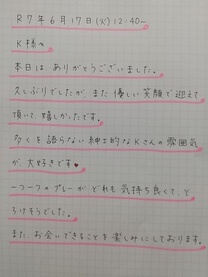 R7年6月17日(火)12:40~
K様へ
本日は、ありがとうございました。
久しぶりでしたが、また優しい笑顔で迎えて
頂いて、嬉しかったです。
多くを語らない紳士的なKさんの雰囲気
が、大好きです♥
一つ一つのプレーがどれも気持ち良くて、と
ろけそうでした。
また、お会いできることを楽しみにしております。